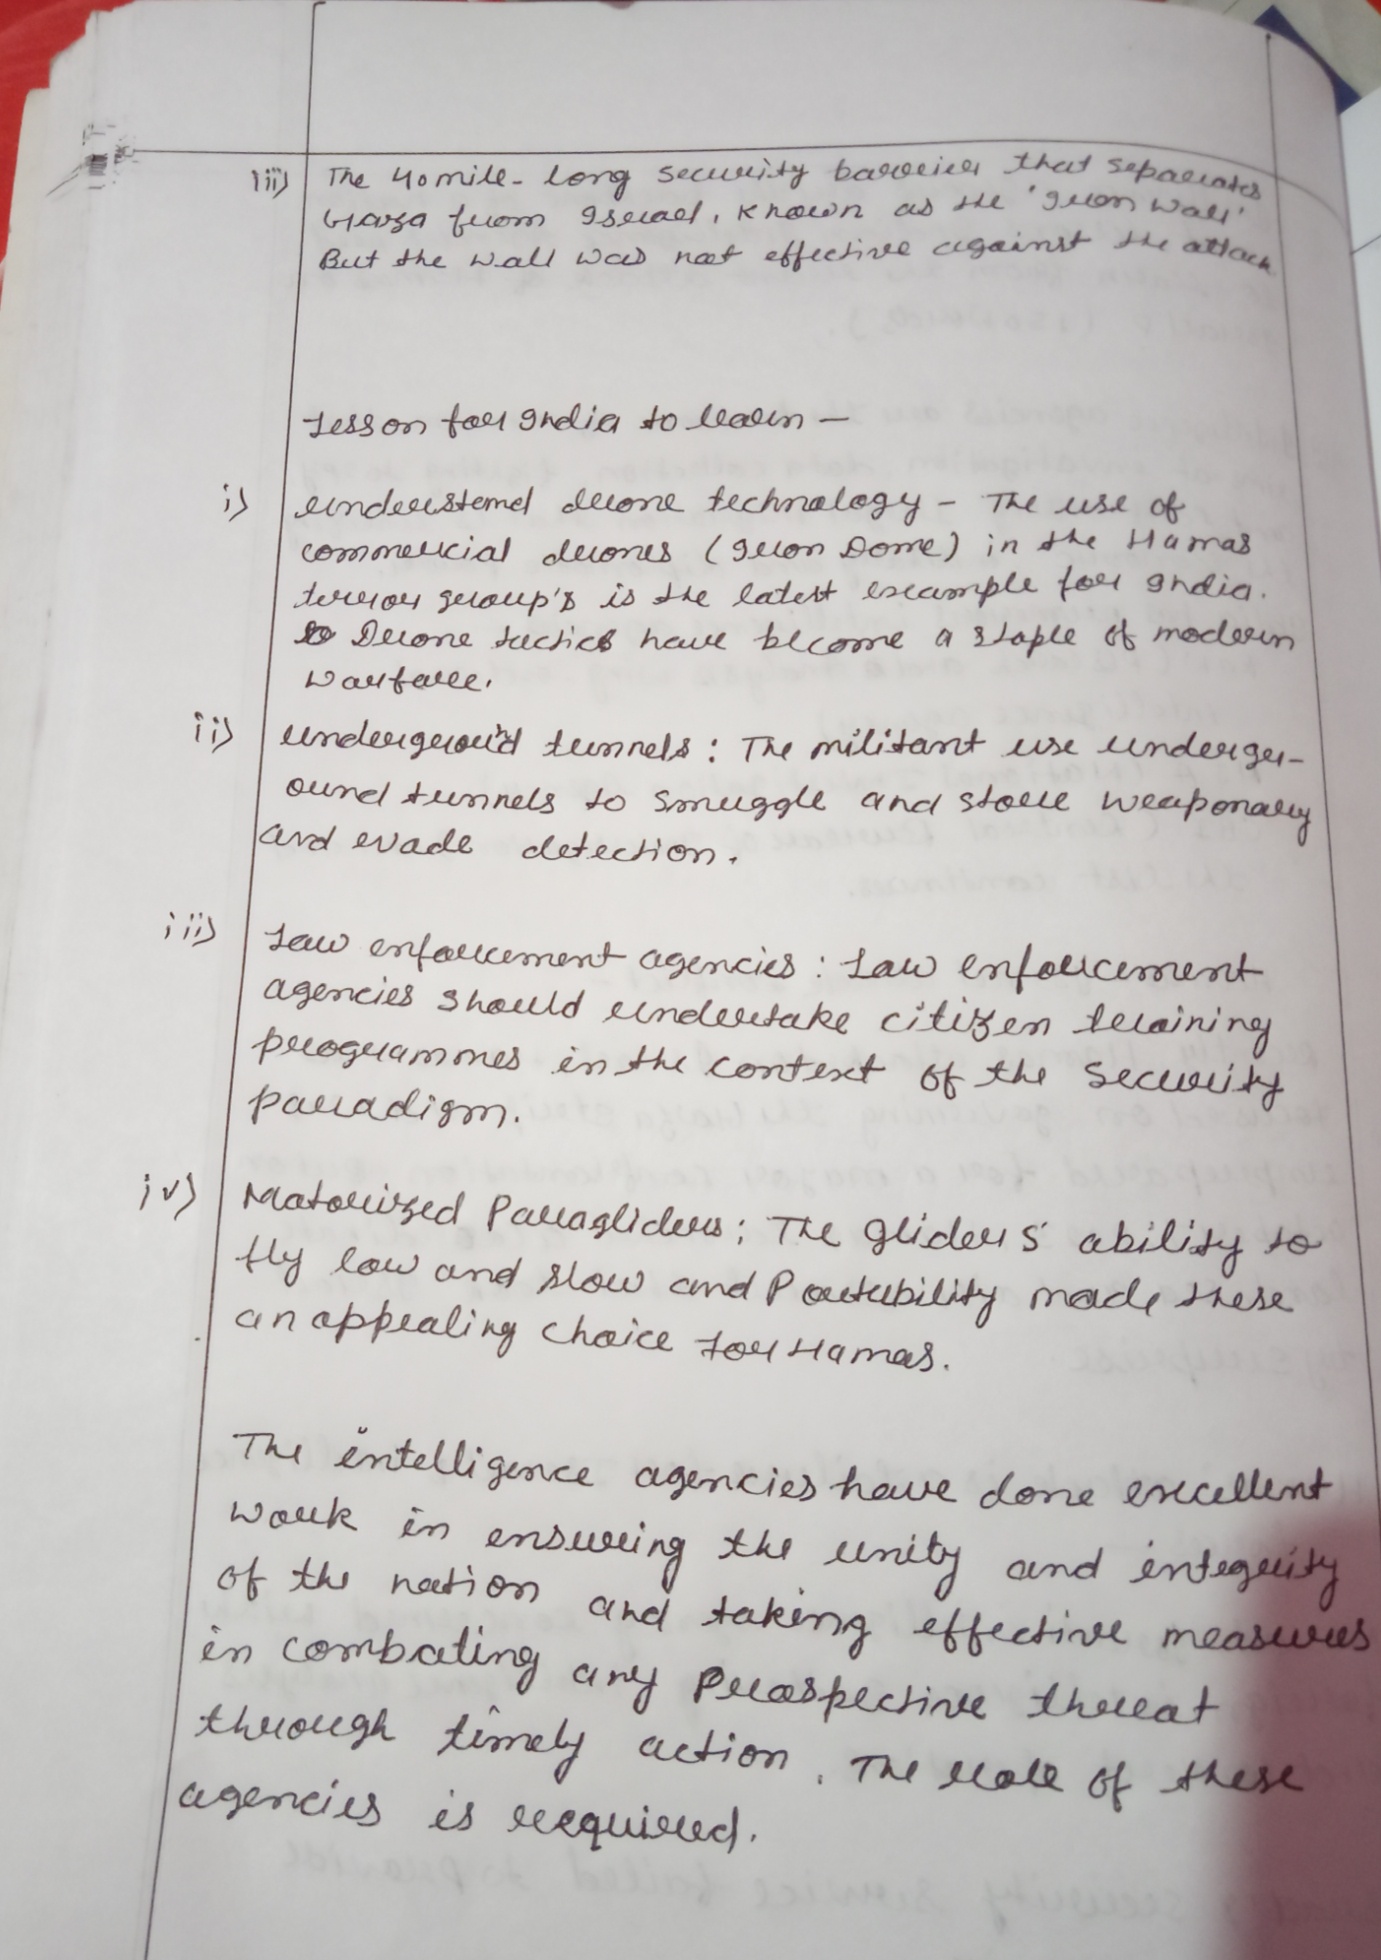 iii) The 40 mile-long security barrier that separates
Gaza from Israel, known as the 'Iron Wall'
But the wall was not effective against the attack
Lesson for India to learn -
i) understand drone technology - The use of
commercial drones (Iron Dome) in the Hamas
terror group's is the latest example for India.
Drone tactics have become a staple of modern
warfare.
ii) underground tunnels: The militant use undergr-
ound tunnels to smuggle and store weaponary
and evade detection.
iii) Law enforcement agencies: Law enforcement
agencies should undertake citizen training
programmes in the context of the security
paradigm.
iv) Motorized Paragliders: The gliders' ability to
fly low and slow and Portability made these
an appealing choice for Hamas.
The intelligence agencies have done excellent
work in ensuring the unity and integrity
of the nation and taking effective measures
in combating any prospective threat
through timely action. The role of these
agencies is required.